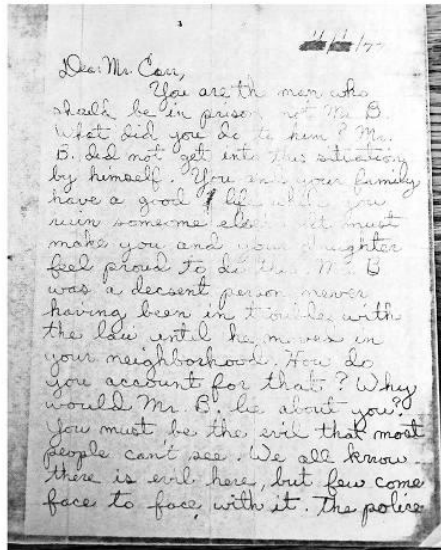 /77
Dear Mr. Carr,
You are th man who
should be in prison not Mr B.
What did you do to him? Mr.
B. did not get into this situation
by himself. You and your family
have a good life while you
ruin someone else. It must
make you and your daughter
feel proud to do this. Mr. B
was a decsent person never
having been in trouble with
the law until he moves in
your neighborhood. How do
you account for that? Why
would Mr. B. lie about you?
You must be the evil that most
people can't see. We all know
there is evil here, but few come
face to face with it. The police